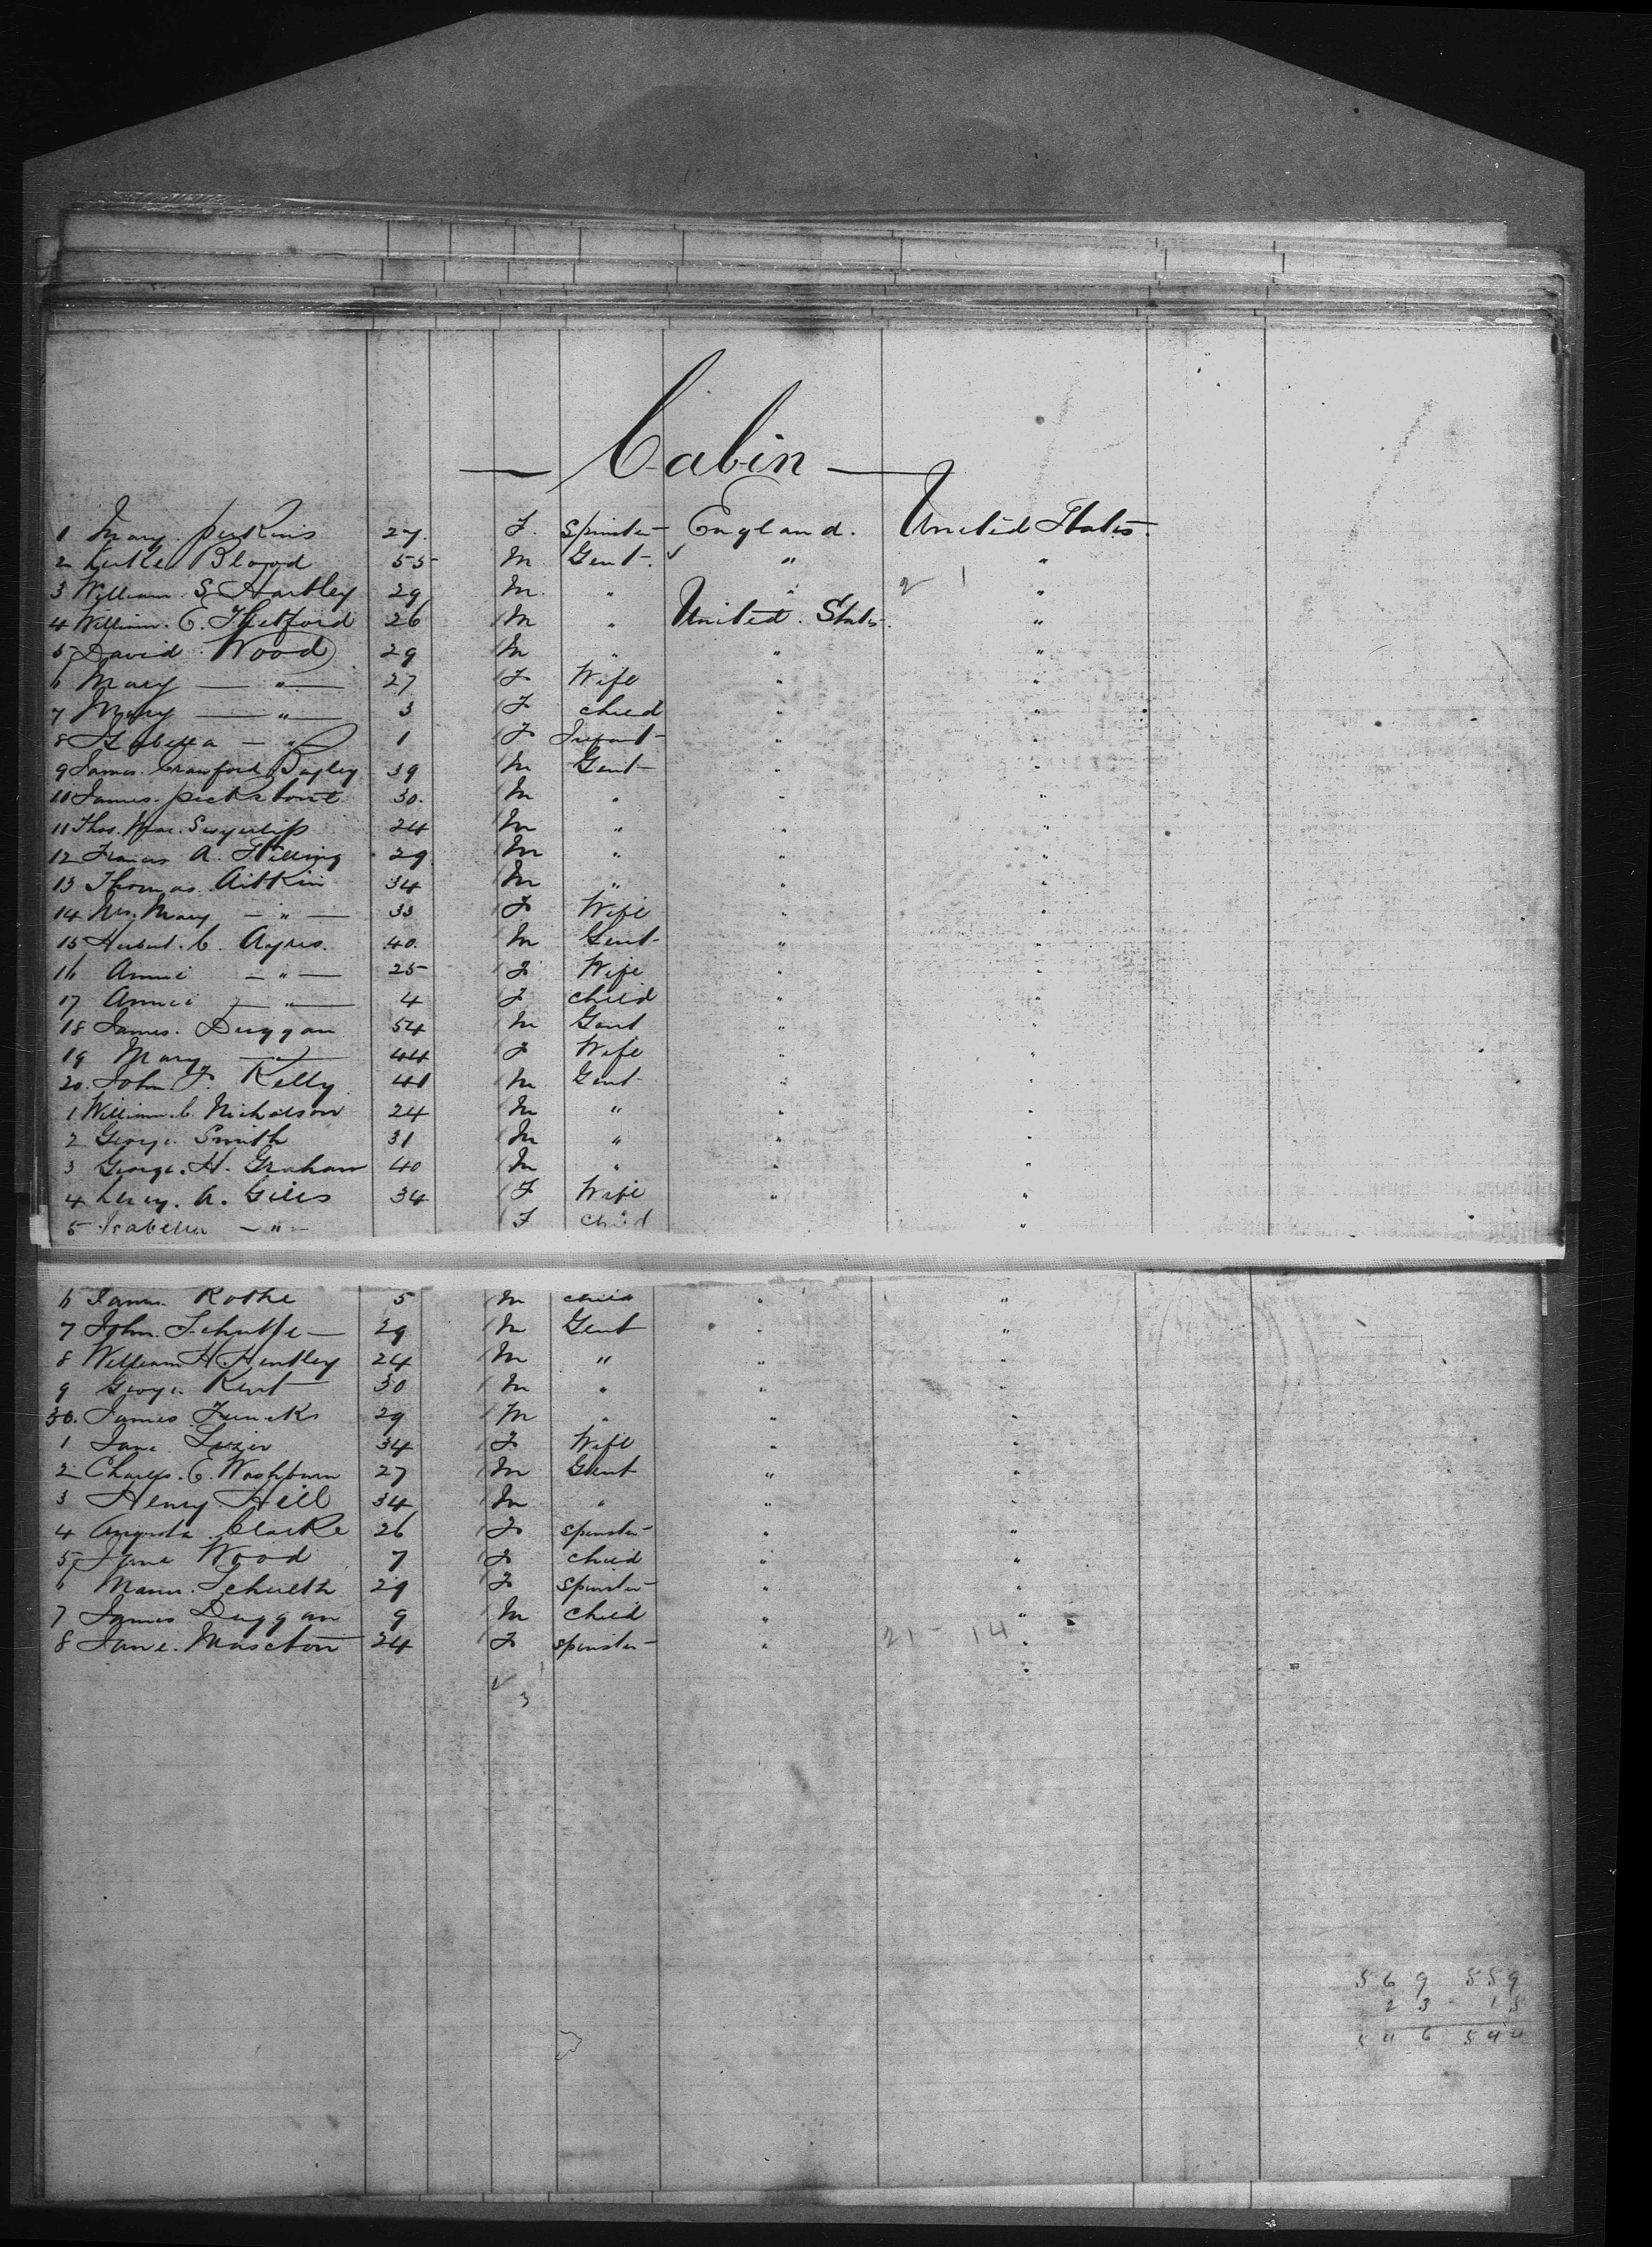 — Cabin —
1 Mary Perkins 27. F. Spinster England. United States.
2 Blood 55 M Gent. " "
3 William. S. Hartley 29 M. " " 2 1 "
4 William. E. Thetford 26 M " United States. "
5 David Wood 29 M " " "
6 Mary — " — 27 F Wife " "
7 Mary — " — 3 F child " "
8 Isabella — " — 1 F Infant " "
9 James. Crawford Bayley 39 M Gent " "
10 James. 30. M " " "
11 Thos. 24 M " " "
12 Francis A. 29 M " " "
13 Thomas. Aitkin 34 M " " "
14 Mrs. Mary — " — 33 F Wife " "
15 Herbert. C. Ayres. 40. M Gent " "
16 Annie — " — 25 F Wife " "
17 Annie — " — 4 F child " "
18 James. Duggan 54 M Gent " "
19 Mary — " — 44 F Wife " "
20. John. F. Kelly 41 M Gent " "
1 William. C. Nicholson 24 M " " "
2 George Smith 31 M " " "
3 George. H. Graham 40 M " " "
4 Lucy. A. Giles 34 F Wife " "
5 Isabella — " — F child "
6 James Rothe 5 M child " "
7 John. 29 M Gent " "
8 William H Huntley 24 M " " "
9 George Kent 30 M " " "
30. James 29 M " " "
1 Jane 34 F Wife " "
2 Charles. E. Washburn 27 M Gent " "
3 Henry Hill 34 M " " "
4 Augusta Clarke 26 F spinster " "
5 Jane Wood 7 F child " "
6 29 F spinster " "
7 James Duggan 9 M child " "
8 Jane. 24 F spinster " 21 - 14 "
3
569 559
23 - 15
546 544